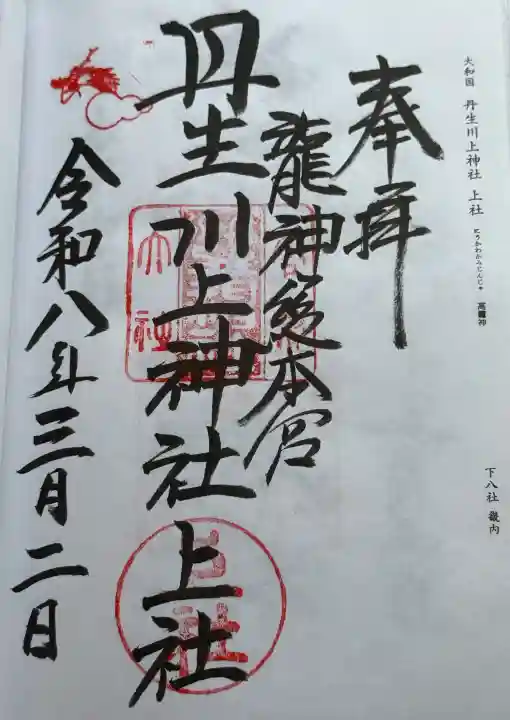 大和国 丹生川上神社 上社 にうかわかみじんじゃ 高龗神
下八社 畿内
奉拝
龍神総本宮
丹生川上神社上社
令和八年三月二日
大社
上社